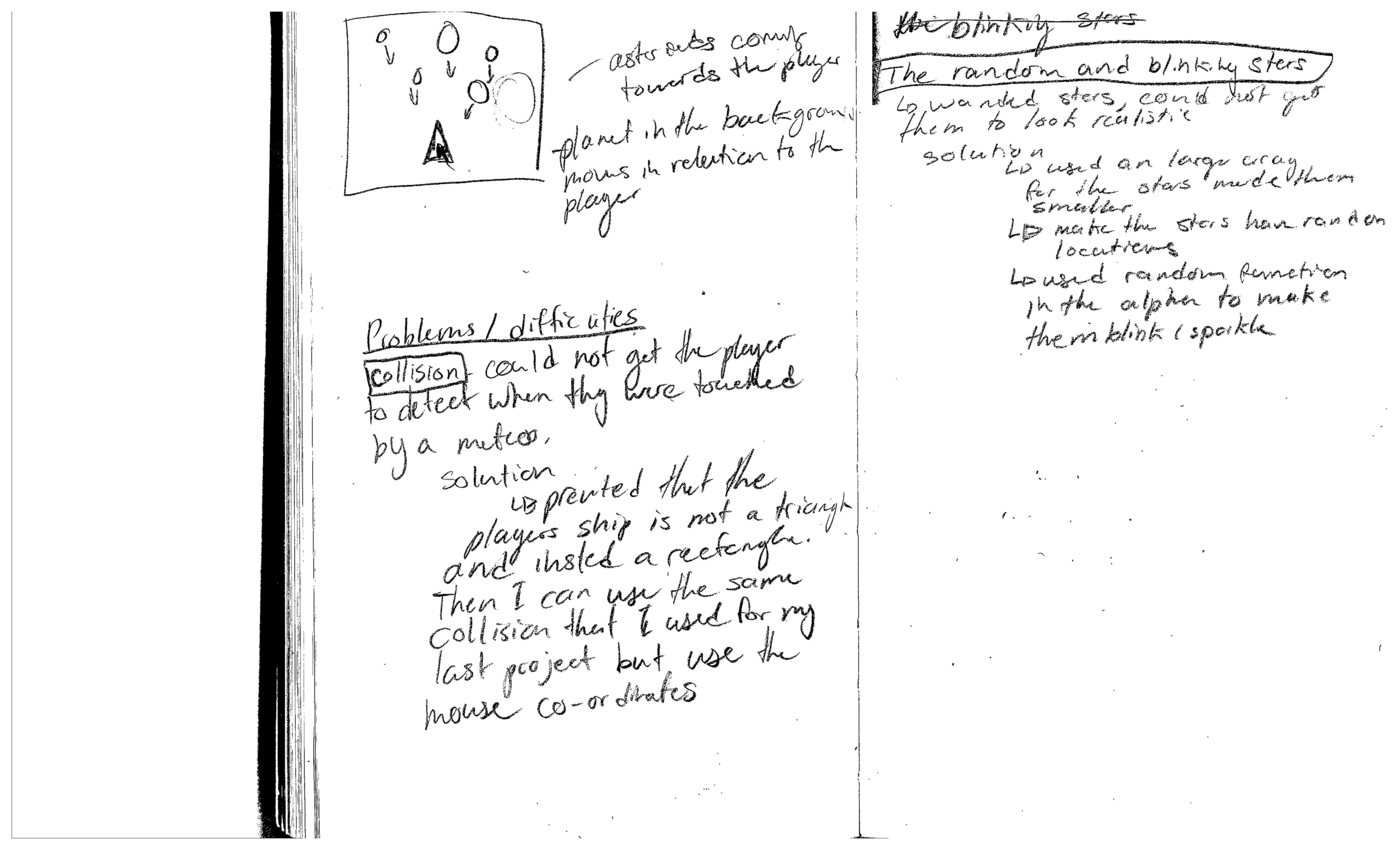 asteroids coming
towards the player
-planet in the background
moves in relation to the
player
Problems / difficulties
collision - could not get the player
to detect when they were touched
by a meteor.
solution
↳ pretented that the
players ship is not a triangle
and insted a rectangle.
Then I can use the same
collision that I used for my
last project but use the
mouse co-ordinates
the blinking stars
The random and blinking stars
↳ wanted stars, could not get
them to look realistic
solution
↳ used an large array
for the stars made them
smaller
↳ make the stars have random
locations
↳ used random function
in the alpha to make
them blink / sparkle